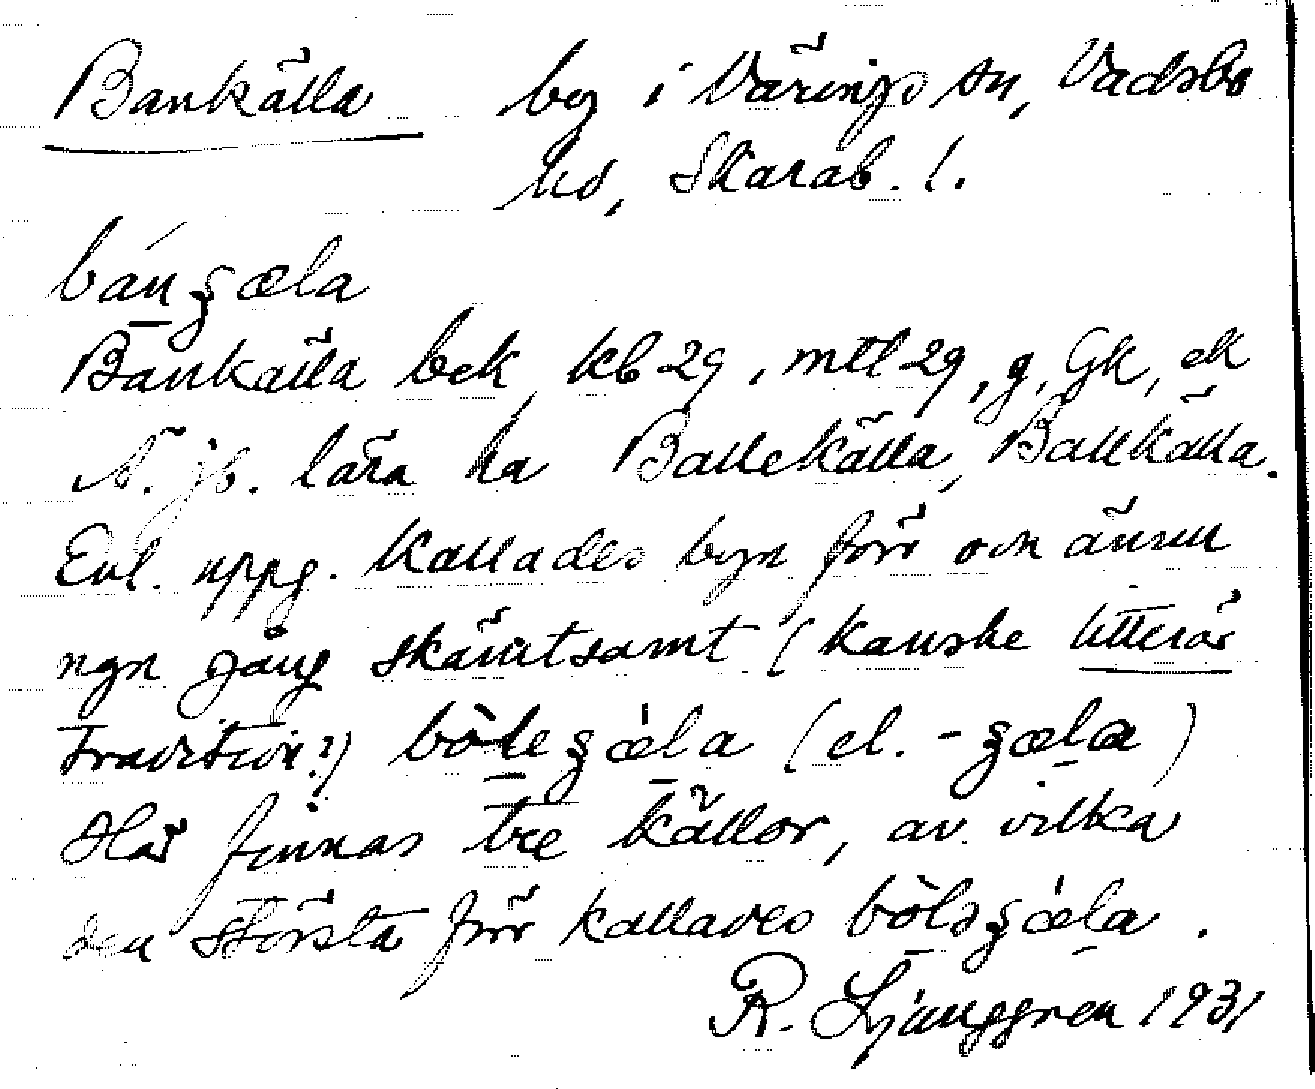 Bankälla by i Värings sn, Vadsbo
hd, Skarab. l.
bánʒæla
Bankälla bek, kb 29, mtl 29, g. Gk, ek
N. jb. lära ha Ballekälla, Ballkälla.
Enl. uppg. kallades byn förr och ännu
ngn gång skämtsamt (kanske litterär
tradition?) bòleʒæ̀la (el. -ʒæla)
Här finnas tre källor, av vilka
den största förr kallades bòləʒæ̀la.
R. Ljunggren 1931